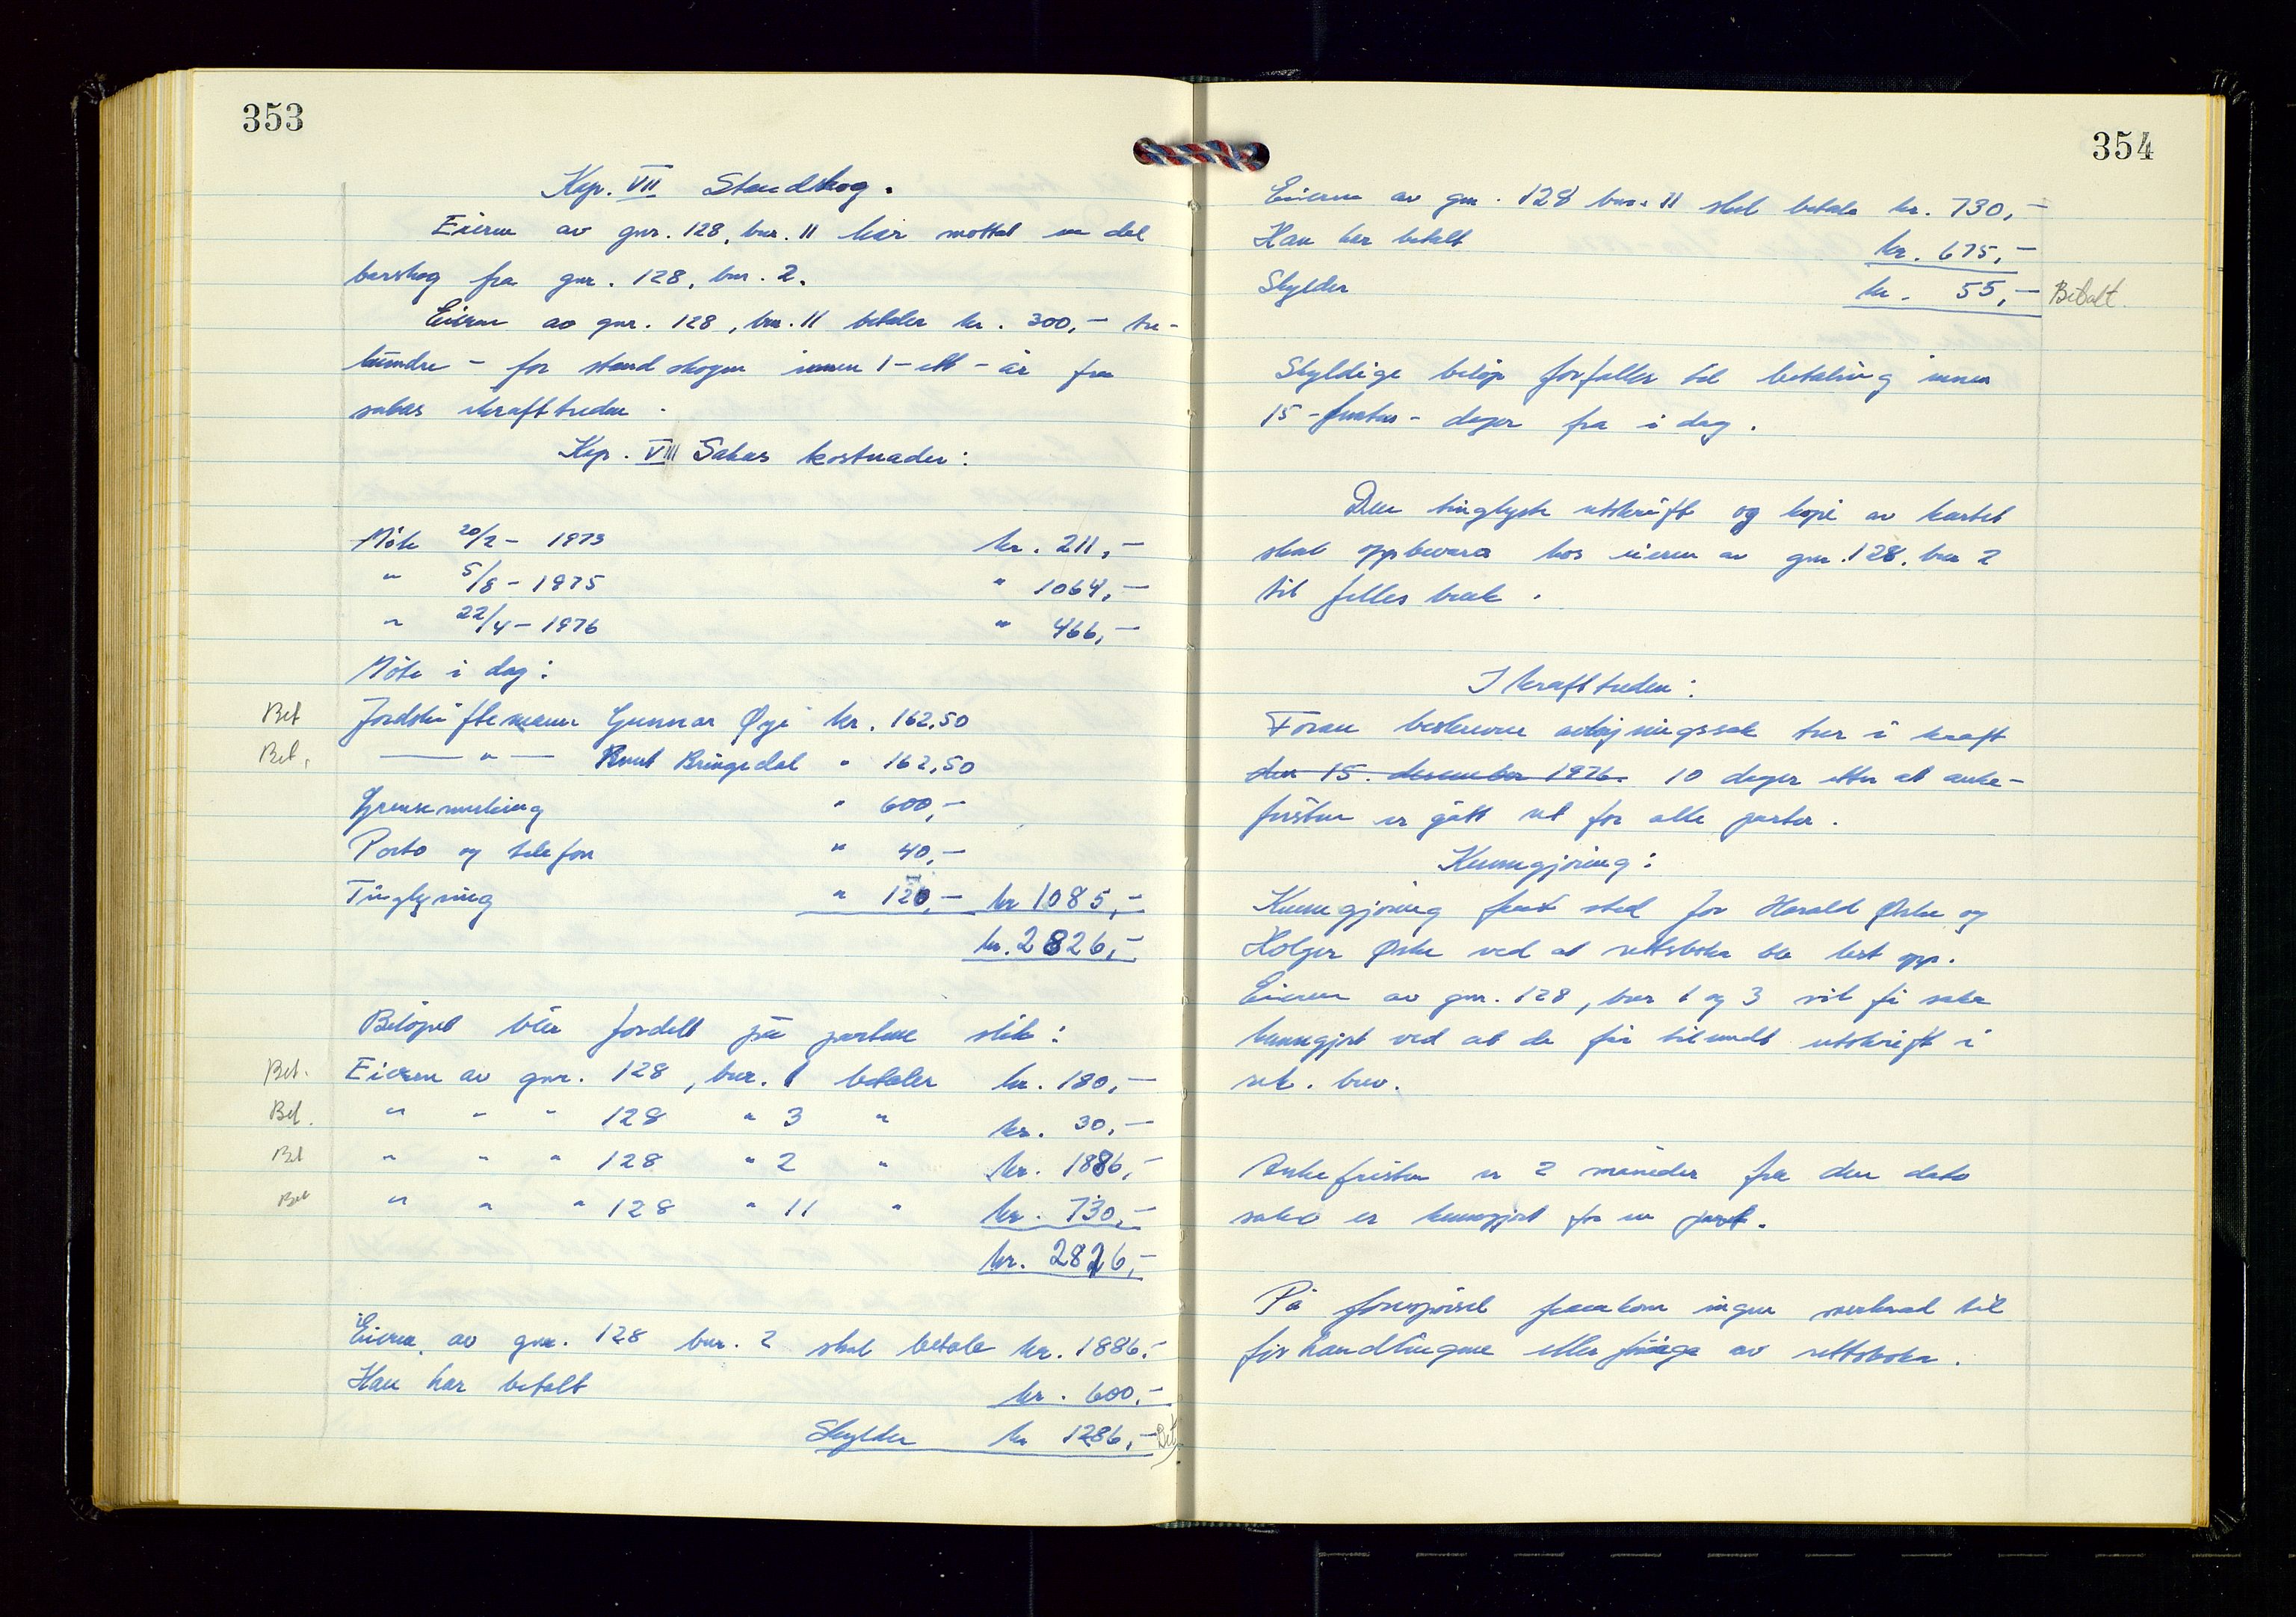 353
Kap. VII Standskog.
Eieren av gnr. 128, bnr. 11 har mottat en del
barskog fra gnr. 128, bnr. 2.
Eieren av gnr. 128, bnr. 11 betaler kr. 300,- tre-
hundre - for standskogen innen 1 - ett - år fra
sakas ikrafttreden.
Kap. VIII Sakas kostnader:
Møte 20/2 - 1973 kr. 211,-
" 5/8 - 1975 " 1064,-
" 22/4 - 1976 " 466,-
Møte i dag:
Bet Jordskiftemann Gunnar Øye kr. 162,50
Bet. — " — Knut Bringedal " 162,50
Grensemerking " 600,-
Porto og telefon " 40,-
Tinglysing " 120,- kr 1085,-
kr. 2826,-
Beløpet blir fordelt på partene slik:
Bet. Eieren av gnr. 128, bnr. 1 betaler kr. 180,-
Bet. " " " 128 " 3 " kr. 30,-
Bet " " " 128 " 2 " kr. 1886,-
Bet " " " 128 " 11 " kr. 730,-
kr. 2826,-
Eieren av gnr. 128 bnr. 2 skal betale kr. 1886,-
Han har betalt kr. 600,-
Skylder kr 1286,- Bet
354
Eieren av gnr. 128 bnr. 11 skal betale kr. 730,-
Han har betalt kr. 675,-
Skylder kr. 55,- Betalt.
Skyldige beløp forfaller til betaling innen
15 - femten - dager fra i dag.
Den tinglyste utskrift og kopi av kartet
skal oppbevares hos eieren av gnr. 128, bnr 2
til felles bruk.
Ikrafttreden:
Foran beskrevne avløysningssak trer i kraft
den 15. desember 1976. 10 dager etter at anke-
fristen er gått ut for alle parter.
Kunngjøring:
Kunngjøring fant sted for Harald Ørske og
Holger Ørske ved at rettsboka ble lest opp.
Eieren av gnr. 128, bnr 1 og 3 vil få saka
kunngjort ved at de får tilsendt utskrift i
rek. brev.
Ankefristen er 2 måneder fra den dato
saka er kunngjort for en part.
På forespørsel framkom ingen merknad til
forhandlingene eller føringa av rettsboka.